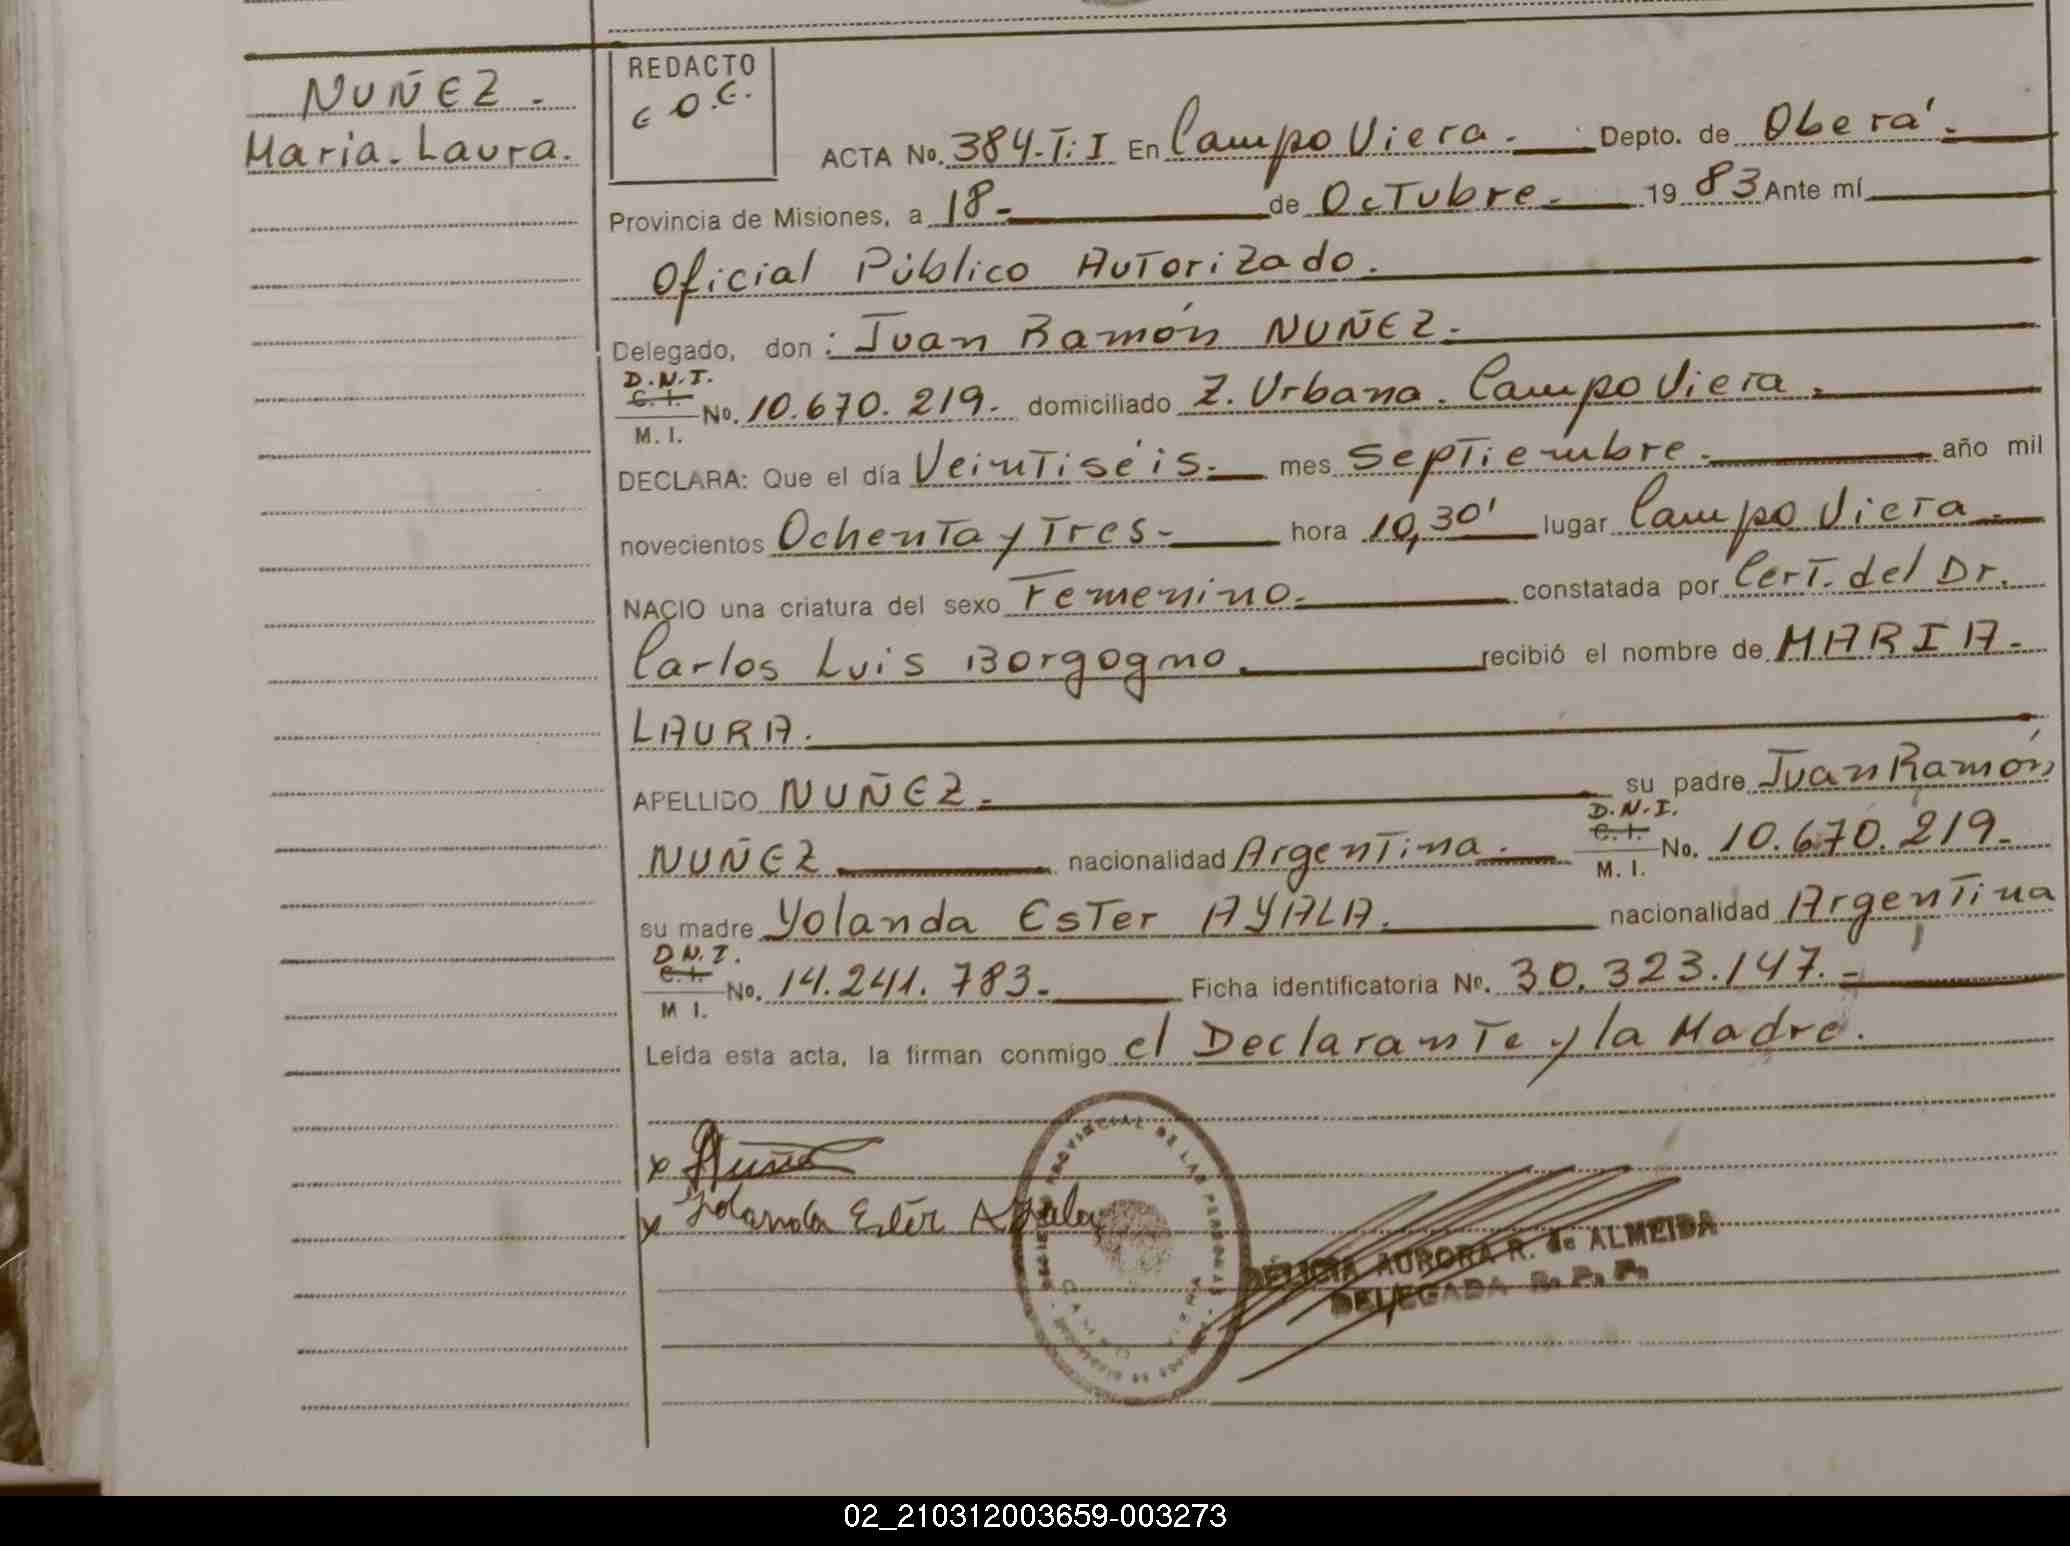 NUÑEZ.
Maria. Laura.
REDACTO
ACTA No. 384-T: I En Campo Viera. Depto. de Oberá.
Provincia de Misiones, a 18- de Octubre. 19 83 Ante mí
Oficial Público Autorizado.
Delegado, don: Juan Ramón NUÑEZ.
D.N.I.
C. I.
M. I. No. 10.670.219. domiciliado Z. Urbana. Campo Viera.
DECLARA: Que el día Veintiséis. mes Septiembre. año mil
novecientos Ochenta y Tres- hora 10,30' lugar Campo Viera.
NACIO una criatura del sexo Femenino. constatada por Cert. del Dr.
Carlos Luis Borgogno. recibió el nombre de MARIA.
LAURA.
APELLIDO NUÑEZ. su padre Juan Ramón
D.N.I.
C. I.
NUÑEZ nacionalidad Argentina. M. I. No. 10.670.219.
su madre Yolanda Ester AYALA. nacionalidad Argentina
D.N.I.
C. I.
M I. No. 14.241.783. Ficha identificatoria No. 30.323.147.-
Leída esta acta, la firman conmigo el Declarante y la Madre.
x Nuñez
x Yolanda Ester Ayala
PROVINCIAL DE LAS PERSONAS
DELICIA AURORA R. de ALMEIDA
DELEGADA R. P. P.
02_210312003659-003273